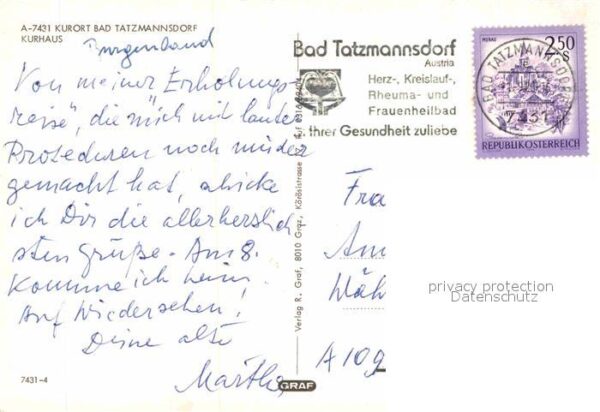 A-7431 KURORT BAD TATZMANNSDORF
KURHAUS
Burgenland
Von meiner Erholungs-
reise", die mich mit lauter
Proseduren noch müder
gemacht hat, schicke
ich Dir die allerherzlich
sten Grüße. Am 8.
komme ich heim.
Auf Wiedersehen!
Deine alte
Martha
7431-4
Verlag R. Graf, 8010 Graz, Körösistrasse
GRAF
Bad Tatzmannsdorf
Austria
Herz-, Kreislauf-,
Rheuma- und
Frauenheilbad
Ihrer Gesundheit zuliebe
BAD TATZMANNSDORF
7431
MURAU
2.50
S
REPUBLIK ÖSTERREICH
Fra
Am
Wäh
A 109
privacy protection
Datenschutz